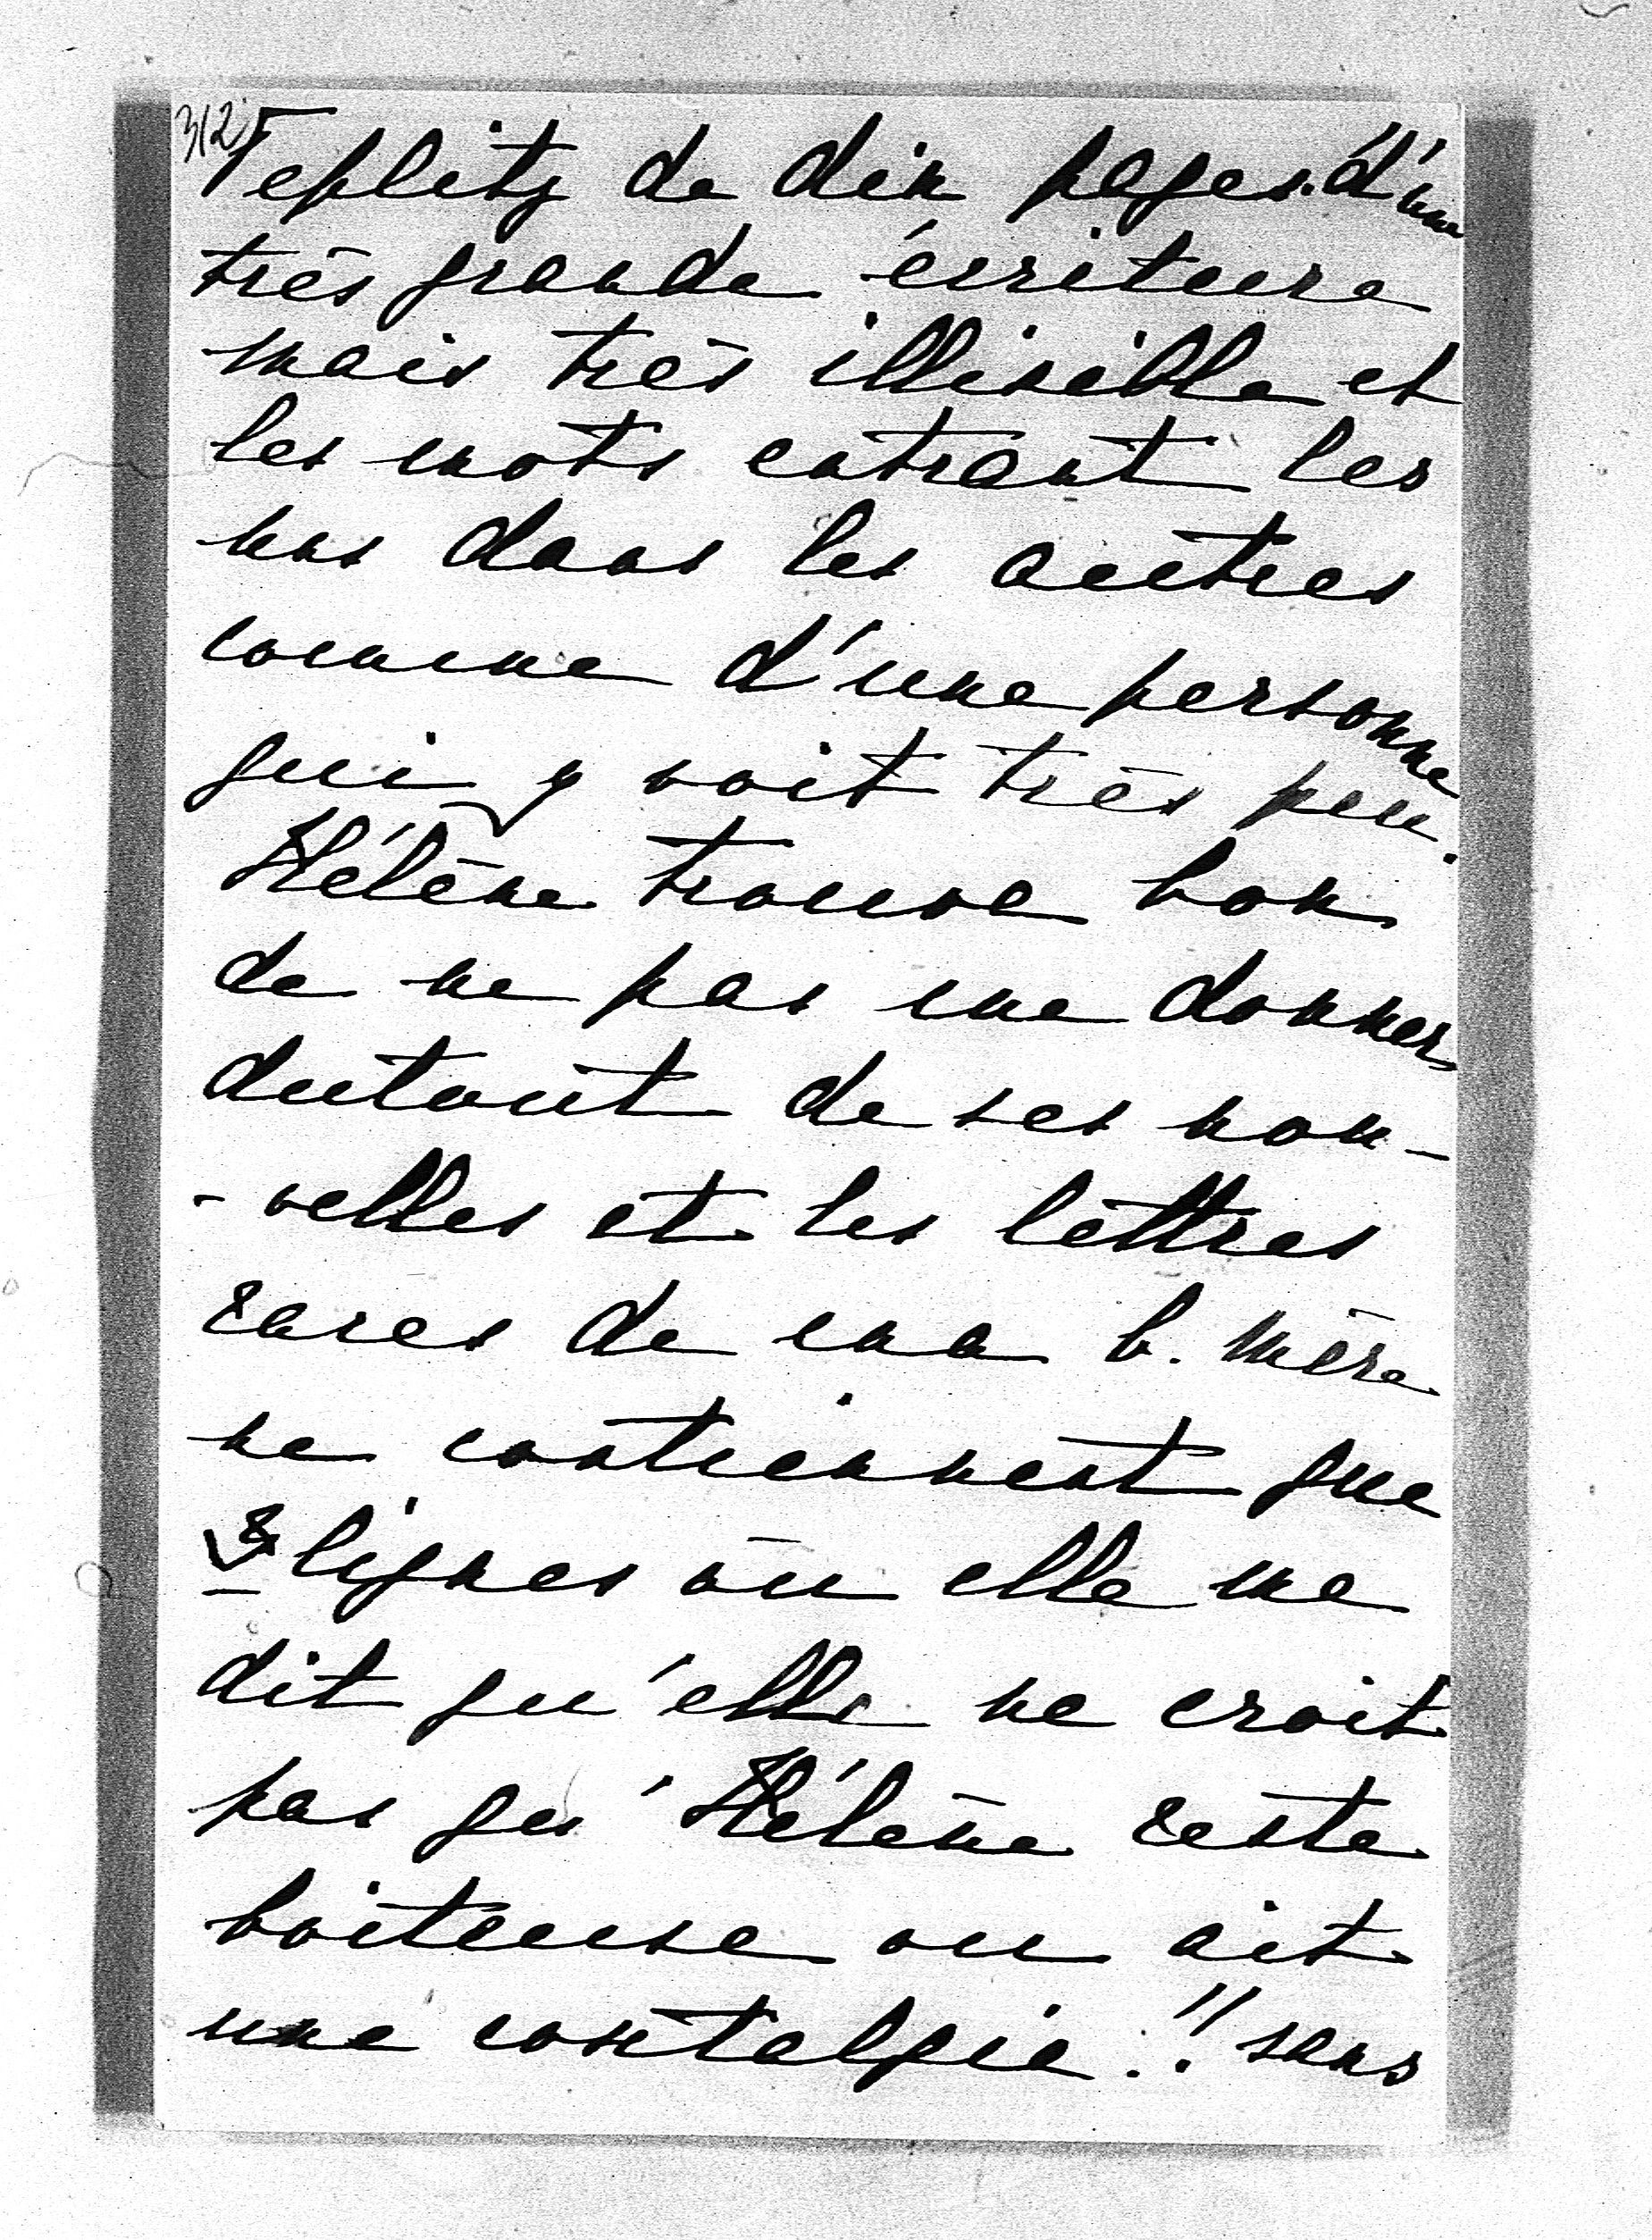 312
Teplitz de dix pages d'une
très grande écriture
mais très illisible et
les mots entrant les
uns dans les autres
comme d'une personne
qui y voit très peu.
Hélène trouve bon
de ne pas me donner
dutout de ses nou-
-velles et les lettres
rares de ma b. mère
ne contiennent que
lignes où elle me
dit qu'elle ne croit
pas qu'Hélène reste
boiteuse ou ait
une coxtalgie!! sans